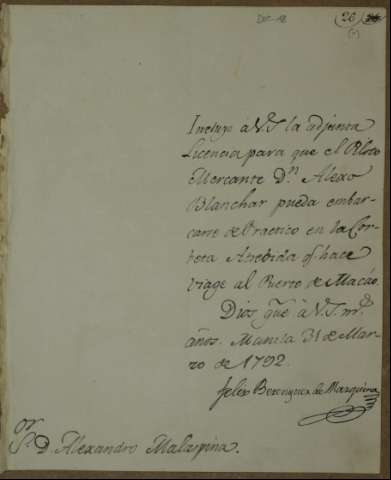 Doc. 18
26
Incluyo à V.S. la adjunta
Licencia para que el Piloto
Mercante Dn. Alexo
Blanchar pueda embar-
carse de Practico en la Cor-
beta Atrebida q.e hace
viage al Puerto de Macáo.
Dios gue. à V.S. ms.
años. Manila 31 de Mar-
zo de 1792.
Felix Berenguer de Marquina
Sor. D. Alexandro Malaspina.